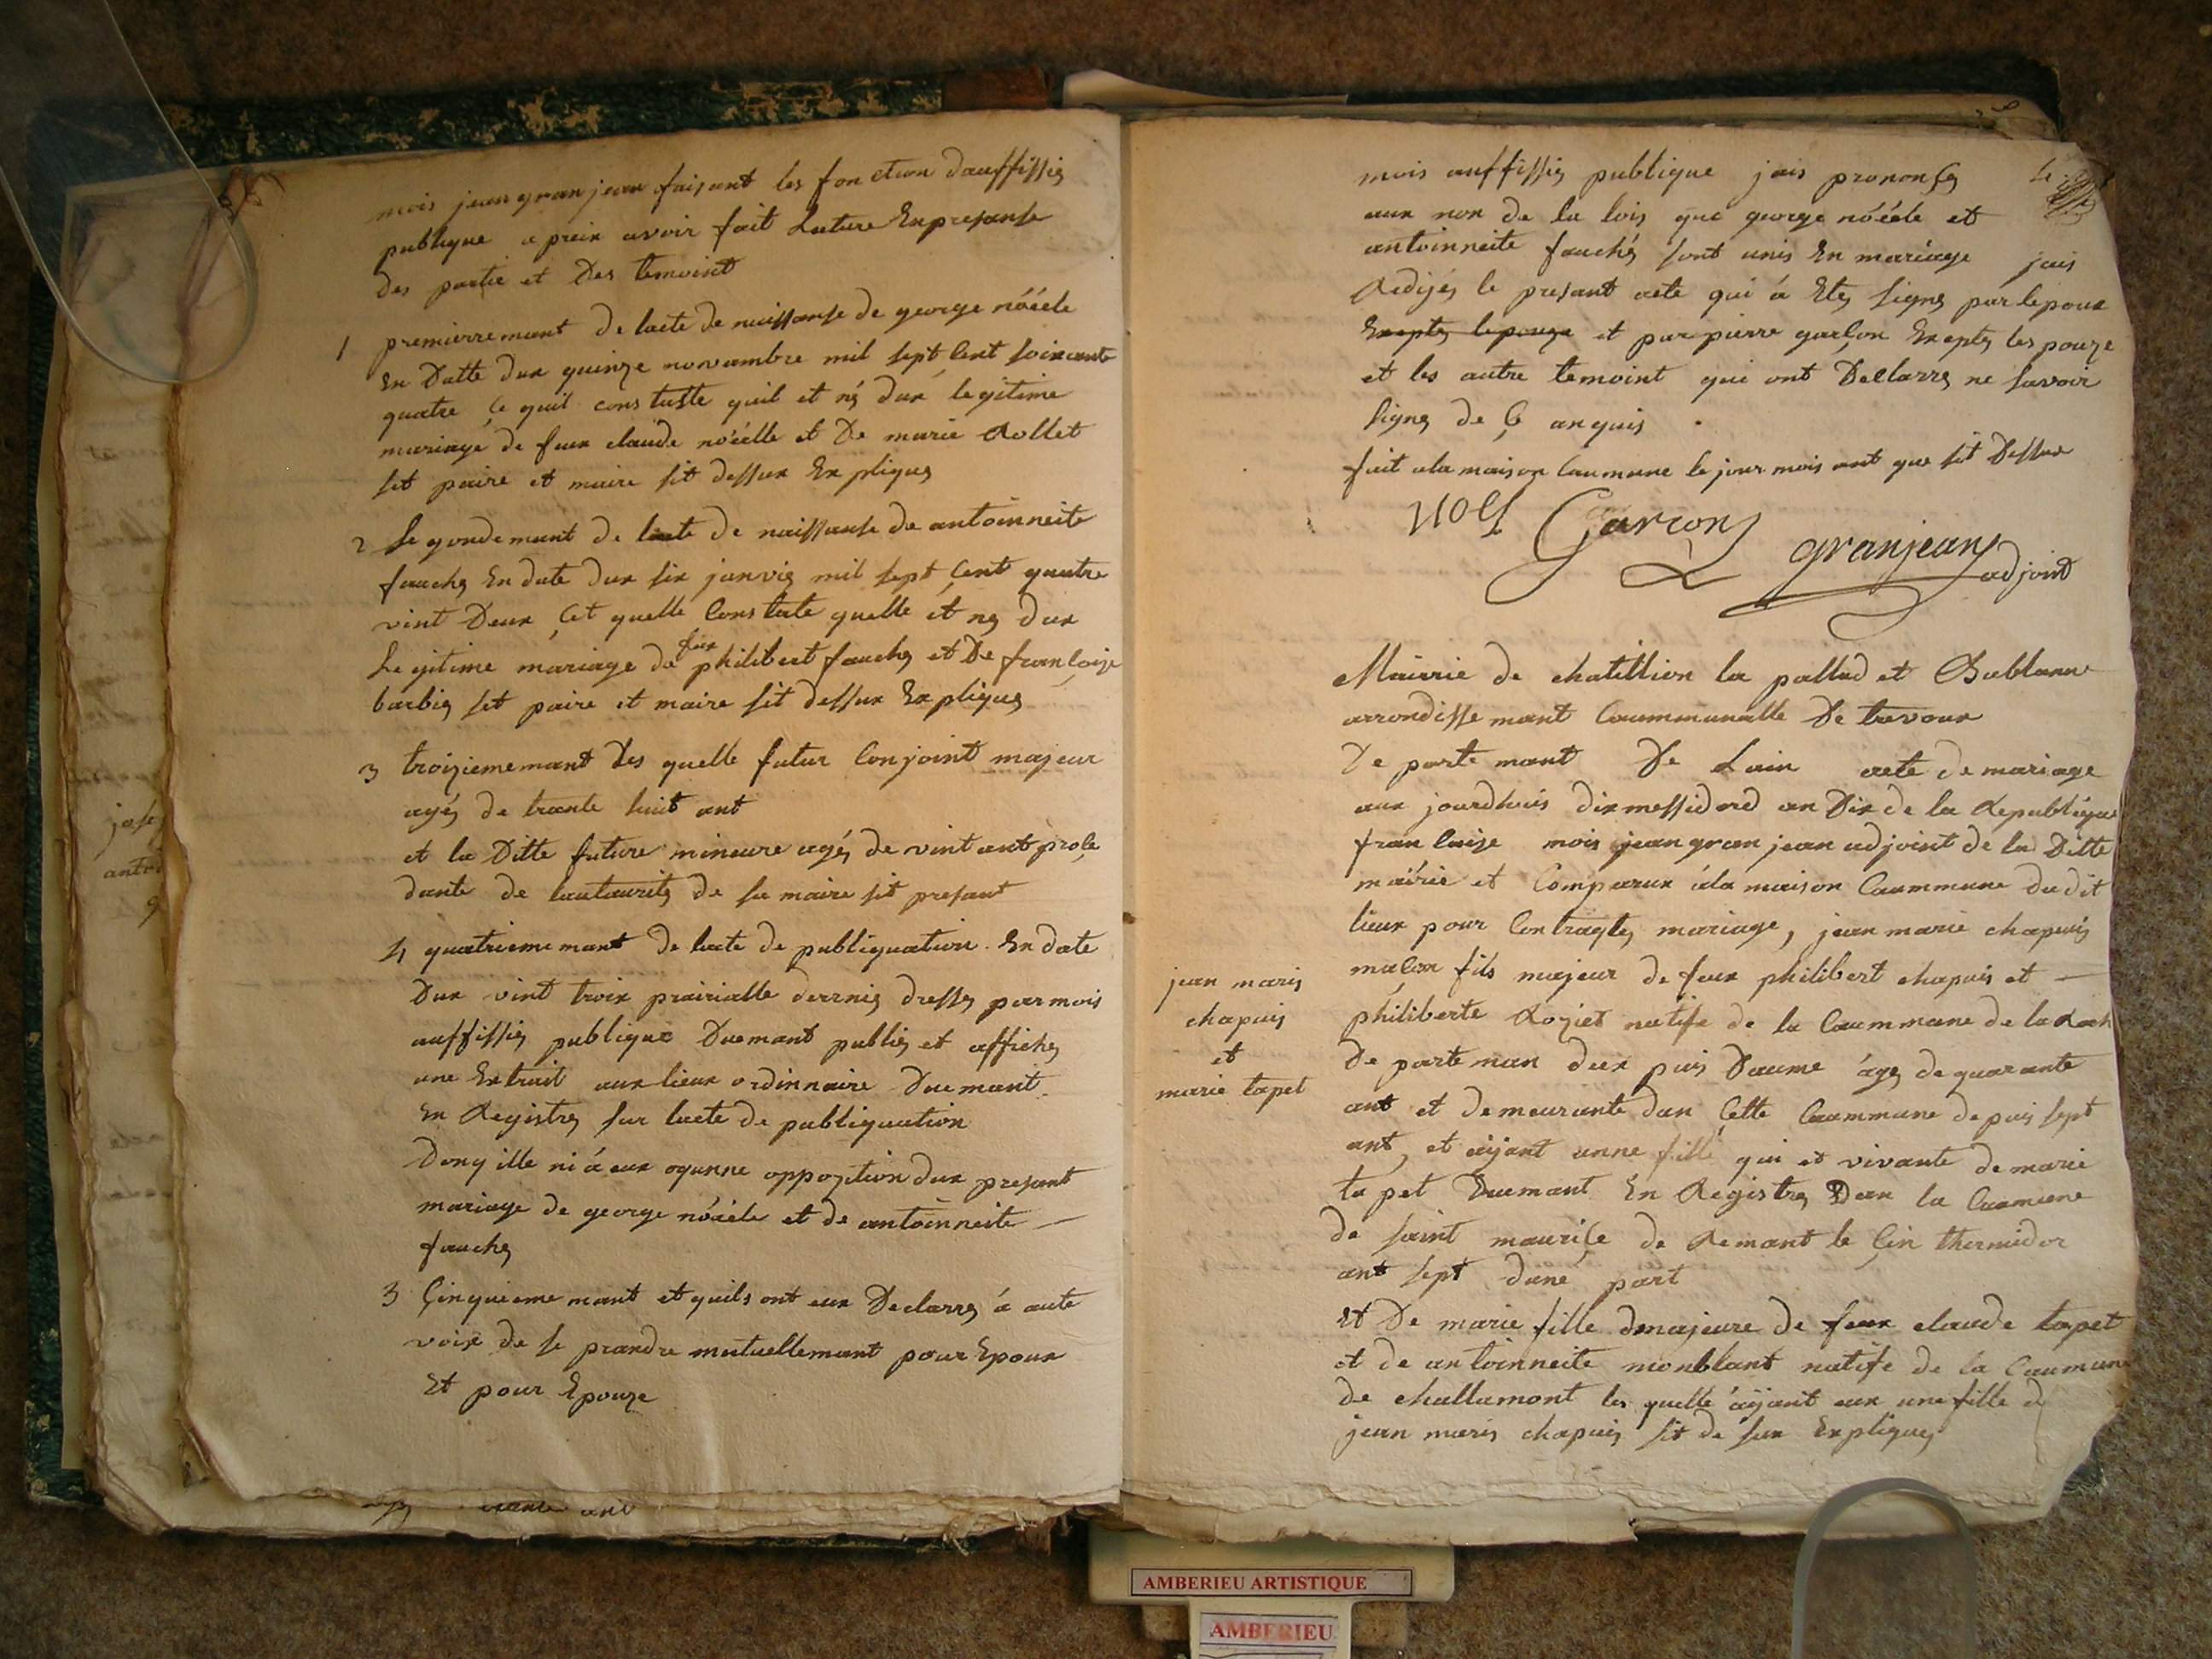 mois jean granjean faisant les fonction dauffissié
publique a preix avoir fait Luture En presanse
des partie et Des temoint
1 premierremant De lacte de naissanse de george nóéele
En Datte dux quinze novambre mil sept Cent soixante
quatre çe quil constuste quil et né dux legitime
mariage de feux claude noéelle et De marie Rollet
sit paire et maire sit dessux Expliqué
2 segondemant de lacte de naissanse de antoinneite
fauché En date dux six janvié mil sept Çent quatre
vint Deux Çet quelle Constate quelle et né dux
Legitime mariage de feux philibert fauché et De françoize
barbié sit paire et maire sit dessux Expliqué
3 troiziememant des quelle futur Conjoint majeur
agés de trante huit ant
et la Ditte future mineure agés de vint ant proçe
dante de lautaurité de sa maire sit presant
4 quatriememant de lacte de publiquation En date
Dux vint troix prairialle dernié dressé par mois
auffissié publique Duemant publié et affiché
une Extrait aux lieux ordinnaire Duemant
En Registré sur lacte de publiquation
Donq ille ni á eux oqunne oppozition dux presant
mariage de george nóéele et de antoinneite —
fauché
3 Çinquieme mant et quils ont eux Declarré á aute
voix de se prandre mutuellemant pour Epoux
Et pour Epouze
jose
anto
mois auffissié publique jais prononsé le
aux non de la lois que george nóéele et
antoinneite fauché sont unis En mariage jais
Redijés le presant acte qui á Eté signé par lepoux
Exepté lepouze et par pierre garçon Exepté lespouze
et les autre temoint qui ont Declarré ne savoir
signé de Çe anquis .
fait ala maison Caumune le jour mois ant que sit Dessux
Garcon
granjean
adjoint
Mairrie de chatillion la pallud et Bublanne
arrondissemant Caummunalle De trevoux
Departemant De Lain acte de mariage
aux jourdhuis dix messidord an Dix de la Republique
françaize mois jean granjean adjoint de la Ditte
mairie et Comparux ála maison Caummune dudit
lieux pour Contraqté mariage, jean marie chapuis
maçon fils majeur de feux philibert chapuis et —
philiberte Rozier natife de la Caummune de la Roch
De parteman dux puis Daume ágé de quarante
ant et demeurante dan Çette Caummune depuis sept
ant, et aijant unne fille qui et vivante de marie
tapet Duemant En Registré Dan la Caumune
de saint mauriçe de Remant le Çin thermidor
ant sept dune part
Et De marie fille majeure de feux claude tapet
et de antoinneite monblant natife de la Caumune
de challamont les quelle aijant eux une fille de
jean marie chapuis sit de sux Expliqué
jean marie
chapuis
et
marie tapet
AMBERIEU ARTISTIQUE
AMBERIEU